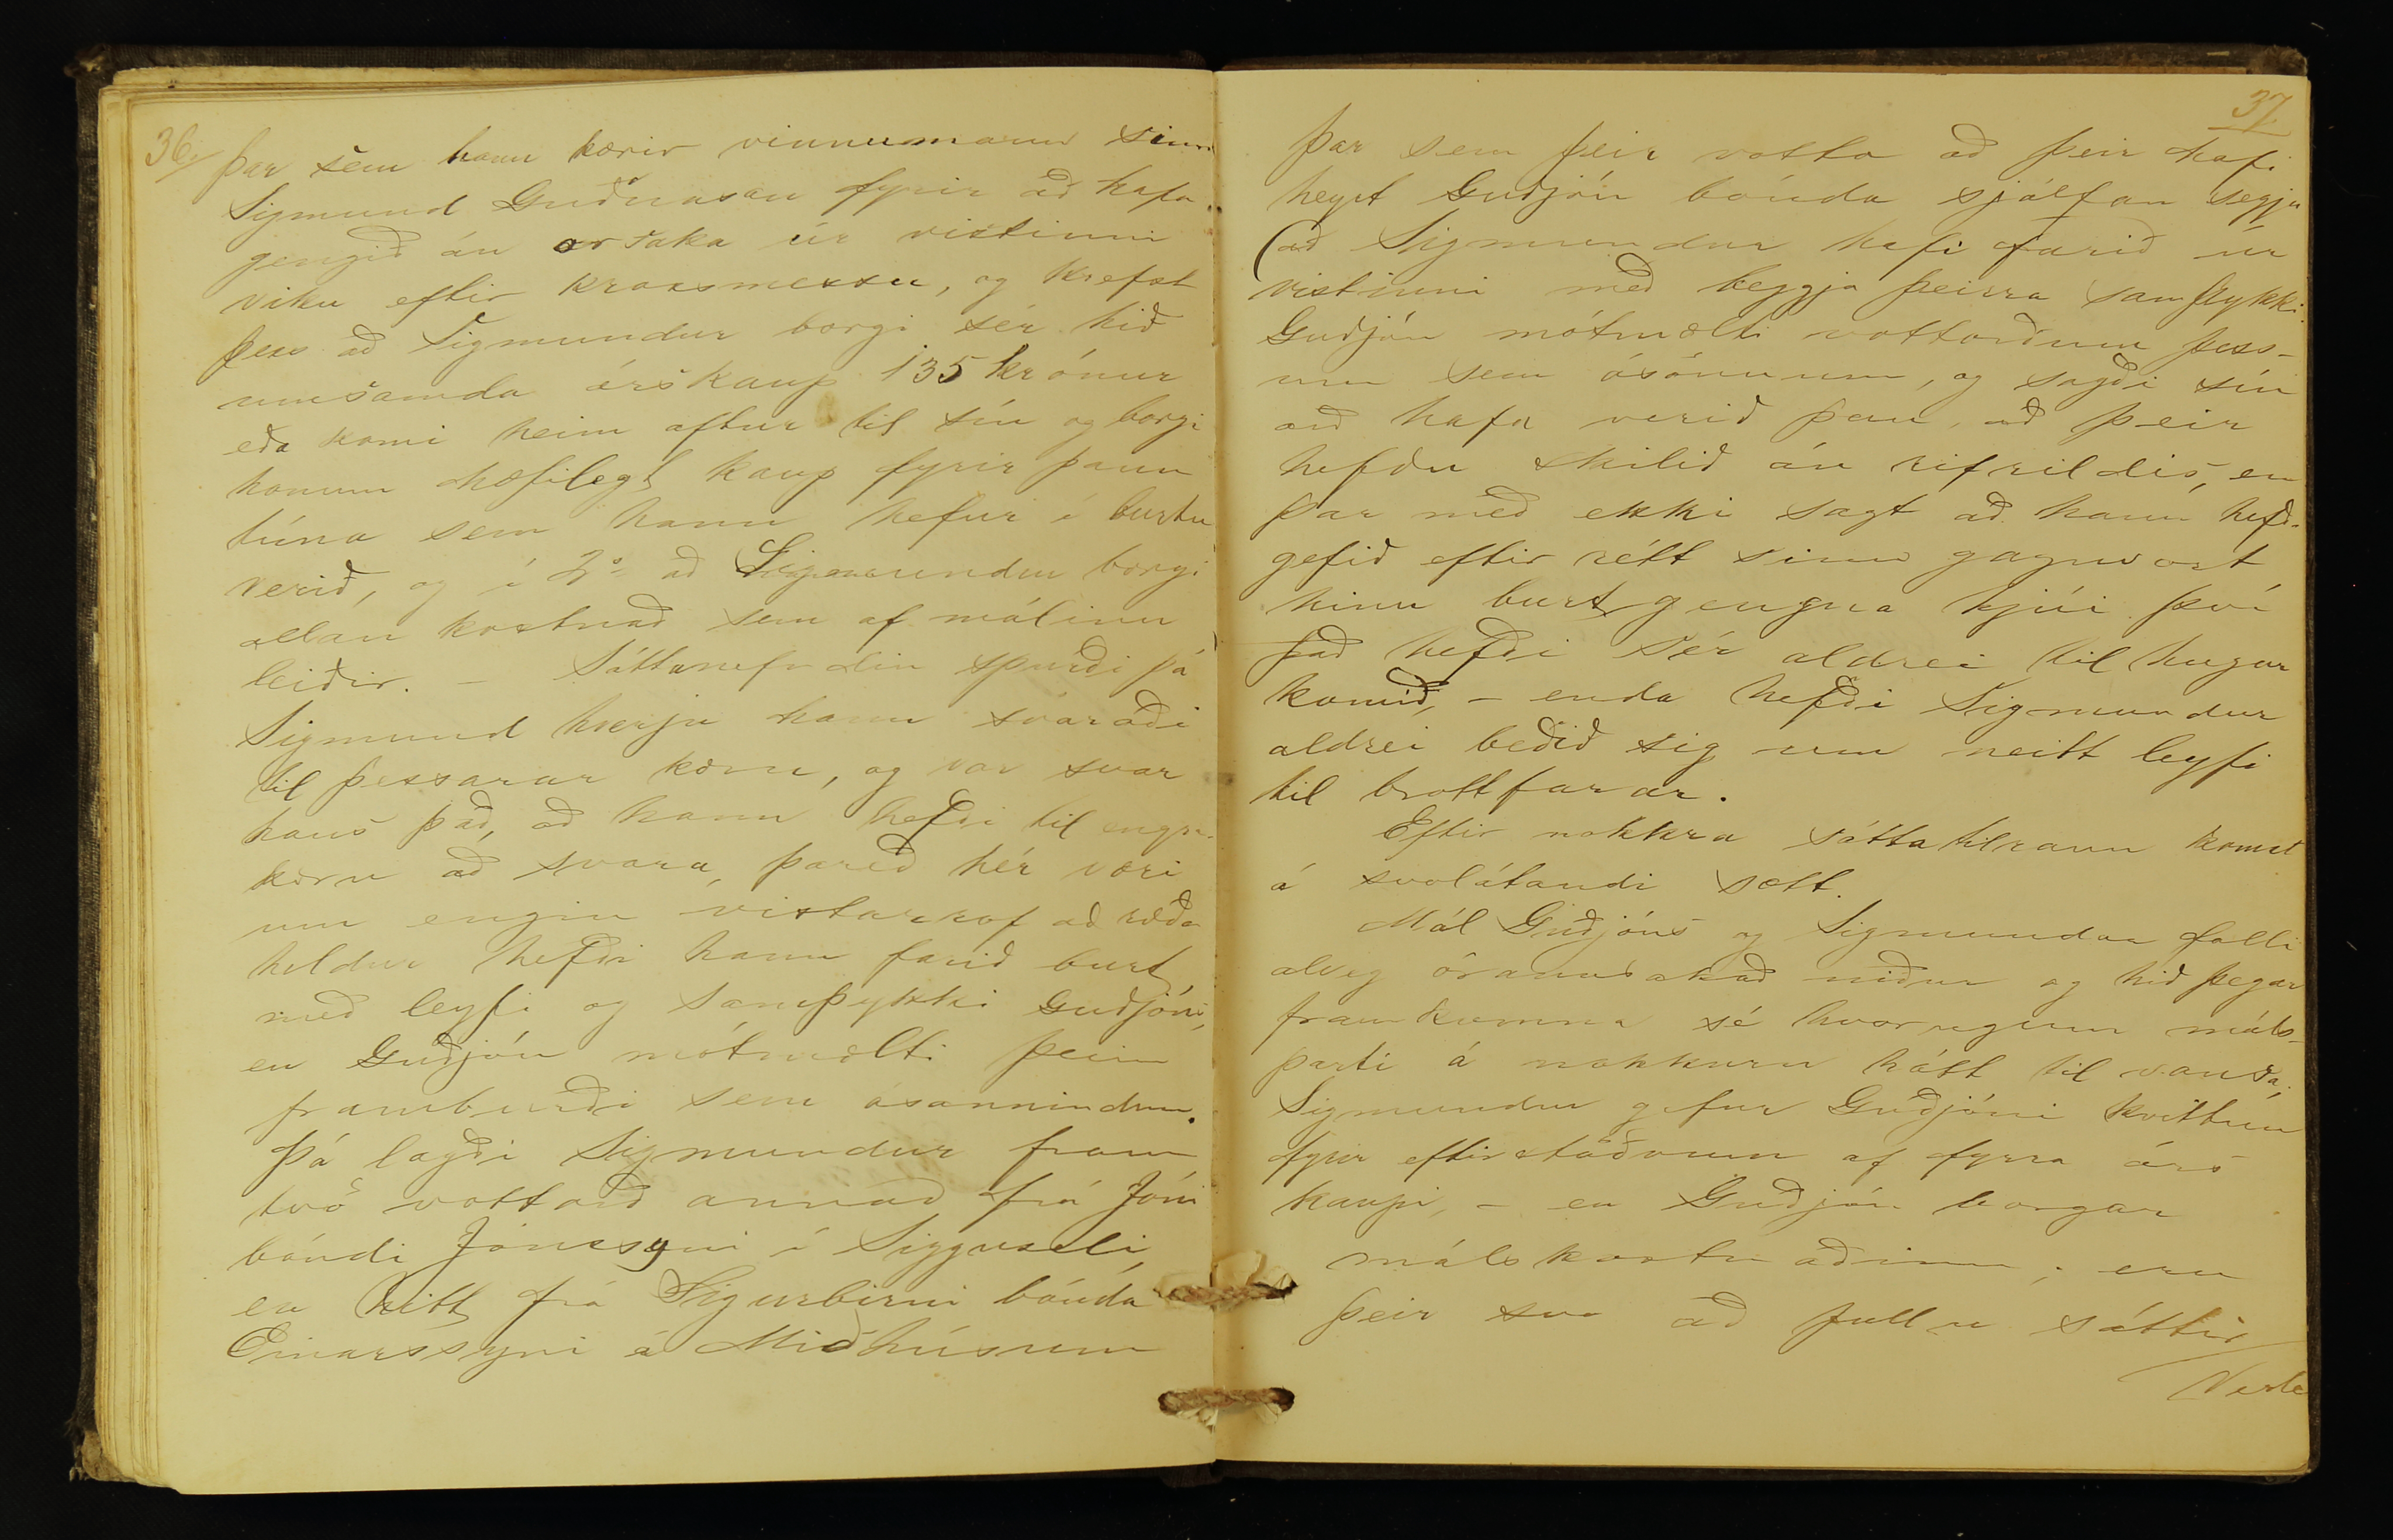 36.
þar sem hann kærir vinnumann sinn
Sigmund Guðnason fyrir að hafa
gengið án orsaka úr vistinni
viku eftir krossmessu, og krefst
þess að Sigmundur borgi sér hið
umsamda árskaup 135 krónur
eða komi heim aftur til sín og borgi
honum hæfilegt kaup fyrir þann
tíma sem hann hefur í burtu
verið, og í 2° að Sigmundur borgi
allan kostnað sem af málinu
leiðir. – Sáttanefndin spurði þá
Sigmund hverju hann svaraði
til þessarar kæru, og var svar
hans það, að hann hefði til engra
kæru að svara, þareð hér væri
um engin vistarrof að ræða
heldur hefði hann farið burt
með leyfi og samþykki Guðjóns,
en Guðjón mótmælti þeim
framburði sem ósannindum.
Þá lagði Sigmundur fram
tvö vottorð annað frá Jóni
bóndi Jónssyni í Sigguseli,
en hitt frá Sigurbirni bónda
Einarssyni á Miðhúsum
37
þar sem þeir votta að þeir hafi
heyrt Guðjón bónda sjálfan segja
(að Sigmundur hafi farið úr
vistinni með beggja þeirra samþykki.
Guðjón mótmælti vottorðum þess-
um sem ósönnum, og sagði sín
orð hafa verið þau, að þeir
hefðu skilið án rifrildis, en
þar með ekki sagt að hann hefði
gefið eftir rétt sinn gagnvart
hinu burtgengna hjúi því
það hefði sér aldrei til hugar
komið, – enda hefði Sigmundur
aldrei beðið sig um neitt leyfi
til brottfarar.
Eftir nokkra sáttatilraun komst
á svolátandi sætt.
Mál Guðjóns og Sigmundar falli
alveg órannsakað niður og hið þegar
framkomna sé hvorugum máls-
parti á nokkurn hátt til vansa.
Sigmundur gefur Guðjóni kvittun
fyrir eftirstöðvum af fyrra árs
kaupi, – en Guðjón borgar
málskostnaðinn; eru
þeir svo að fullu sáttir